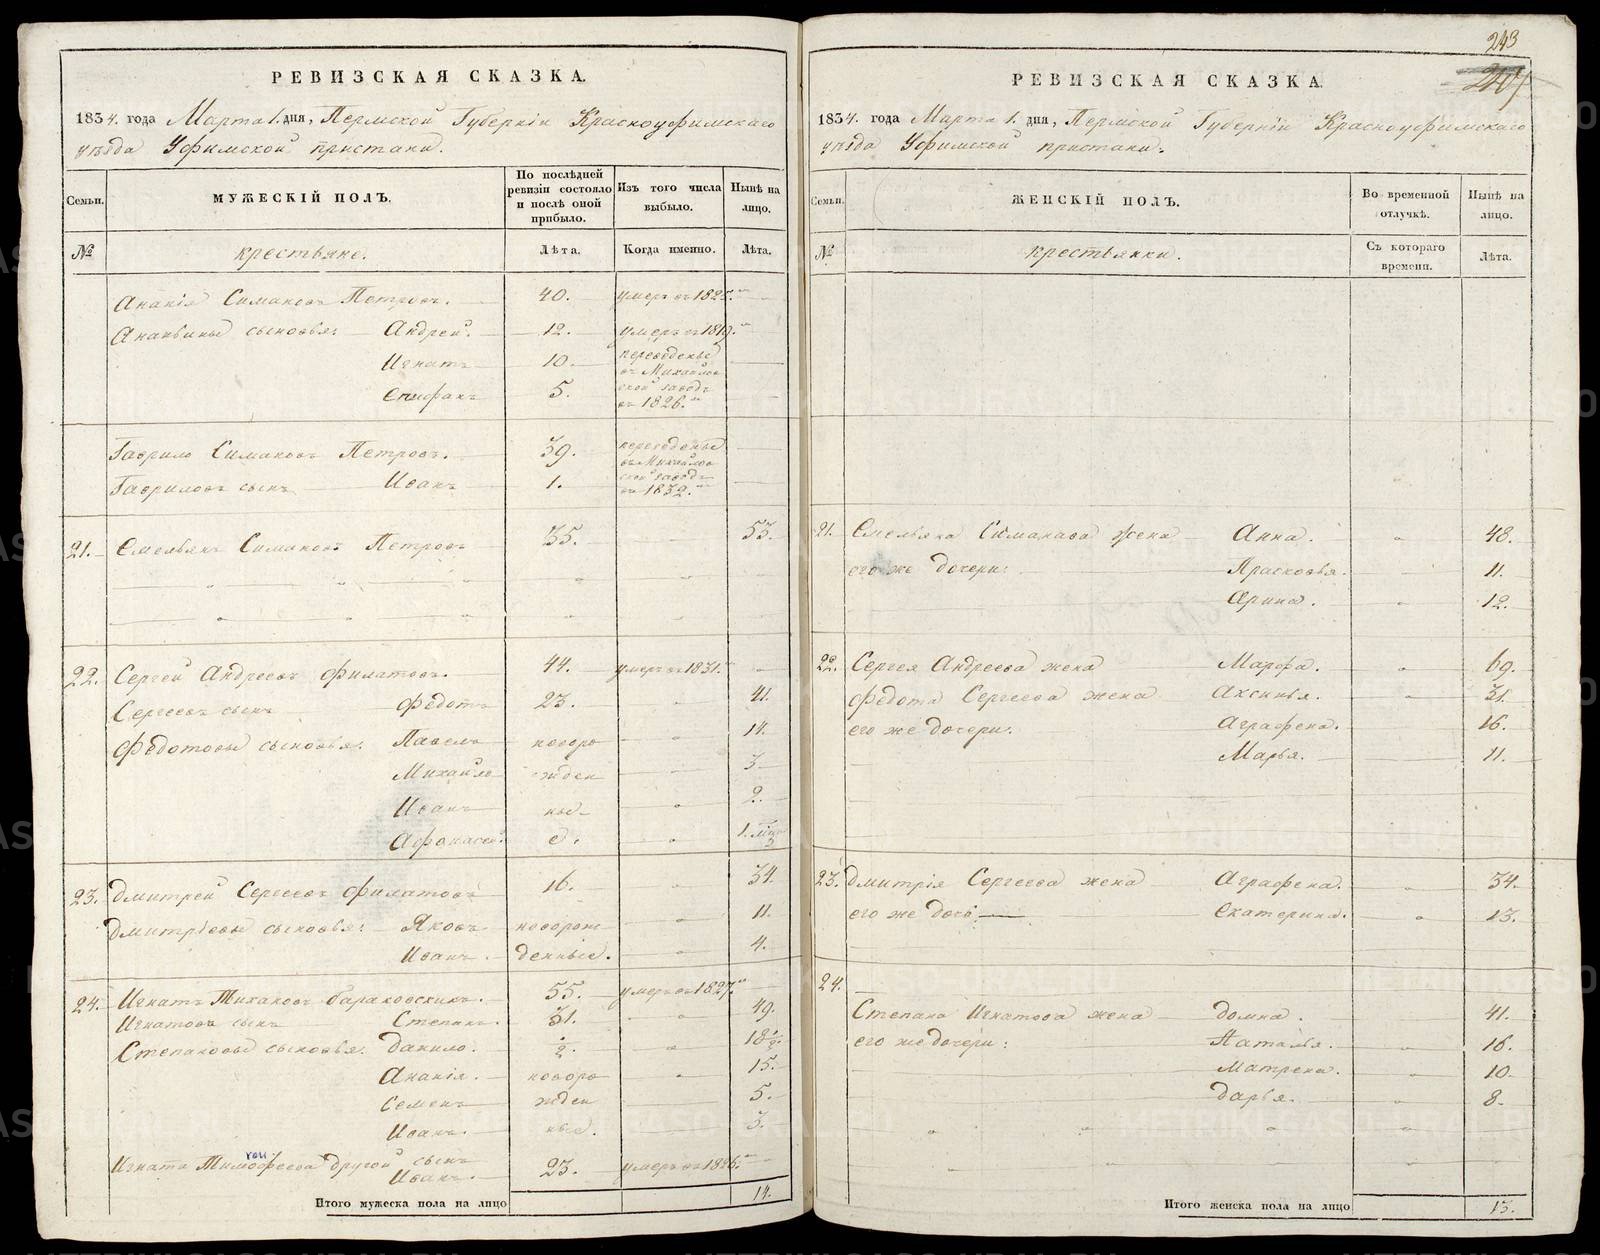 РЕВИЗСКАЯ СКАЗКА.
1834. года Марта 1. дня, Пермской Губернiи Красноуфимскаго
уѣзда Уфимской пристани.
Семьи.
МУЖЕСКIЙ ПОЛЪ.
По послѣдней ревизiи состояло и послѣ оной прибыло.
Изъ того числа выбыло.
Нынѣ на лицо.
№
крестьяне.
Лѣта.
Когда именно.
Лѣта.
Ананiй Симановъ Петровъ. 40. умеръ въ 182
Ананьины сыновья: Андрей. 12. умеръ въ 1819.
Игнатъ 10. переведены
въ Михайлов
Епифанъ 5. ской заводъ
въ 1826.
Гаврило Симановъ Петровъ. 39. переведены
въ Михайлов
Гавриловъ сынъ Иванъ 1. ской заводъ
въ 1832.
21. Емельянъ Симановъ Петровъ 35. 53.
22. Сергей Андреевъ Филатовъ. 44. умеръ въ 1831.
Сергеевъ сынъ Федотъ 23. 41.
Федотовы сыновья: Павелъ новоро 14.
Михайло жден 3
Иванъ ны 2.
Афонасей. е. 1.
23. Дмитрей Сергеевъ Филатовъ 16. 34.
Дмитрiевы сыновья: Яковъ новорож 11.
Иванъ. денные. 4.
24. Игнатъ Тихановъ Бараковскихъ. 55. умеръ въ 1827.
Игнатовъ сынъ Степанъ. 31. 49.
Степановы сыновья: Данило. 1/2. 18 1/2.
Ананiя. новоро 15.
Семенъ жден 5.
Иванъ. ные. 3.
Игната Тимофеева другой сынъ
Иванъ. 23. умеръ въ 1826.
Итого мужеска пола на лицо 14.
243
РЕВИЗСКАЯ СКАЗКА.
1834. года Марта 1. дня, Пермской Губернiи Красноуфимскаго
уѣзда Уфимской пристани.
Семьи.
ЖЕНСКIЙ ПОЛЪ.
Во временной отлучкѣ.
Нынѣ на лицо.
№
крестьянки.
Съ котораго времени.
Лѣта.
21. Емельяна Симанова жена Анна. 48.
его же дочери: Прасковья. 11.
Арина. 12.
22. Сергея Андреева жена Марфа. 69.
Федота Сергеева жена Аксинья. 31.
его же дочери: Аграфена. 16.
Марья. 11.
23. Дмитрiя Сергеева жена Аграфена. 34.
его же дочь Екатерина. 13.
24.
Степана Игнатова жена Домна. 41.
его же дочери: Наталья. 16.
Матрена. 10.
Дарья. 8.
Итого женска пола на лицо 13.
METRIKI.GASO-URAL.RU